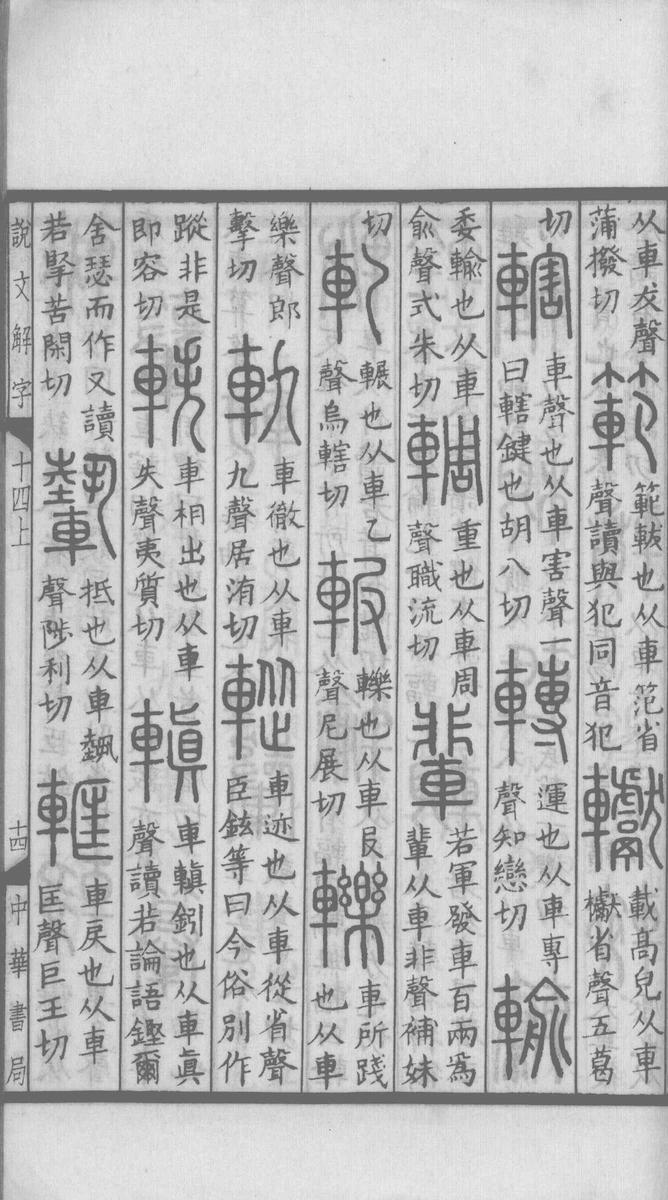 从車犮聲蒲撥切範範軷也从車笵省聲讀與犯同音犯載高皃从車省聲五葛
切轄車聲也从車害聲一曰轄鍵也胡八切轉運也从車專聲知戀切輸
委輸也从車俞聲式朱切輖重也从車周聲職流切輩若軍發車百兩爲輩从車非聲補妹
切軋輾也从車乙聲烏轄切轢也从車㞋聲尼展切轢車所踐也从車
樂聲郎擊切軌車徹也从車九聲居洧切車迹也从車從省聲臣鉉等曰今俗別作
蹤非是即容切軼車相出也从車失聲夷質切車也从車眞聲讀若論語鏗爾
舍瑟而作又讀若掔苦閑切抵也从車聲陟利切軭車戾也从車匡聲巨王切
說文解字 十四上 十四 中華書局